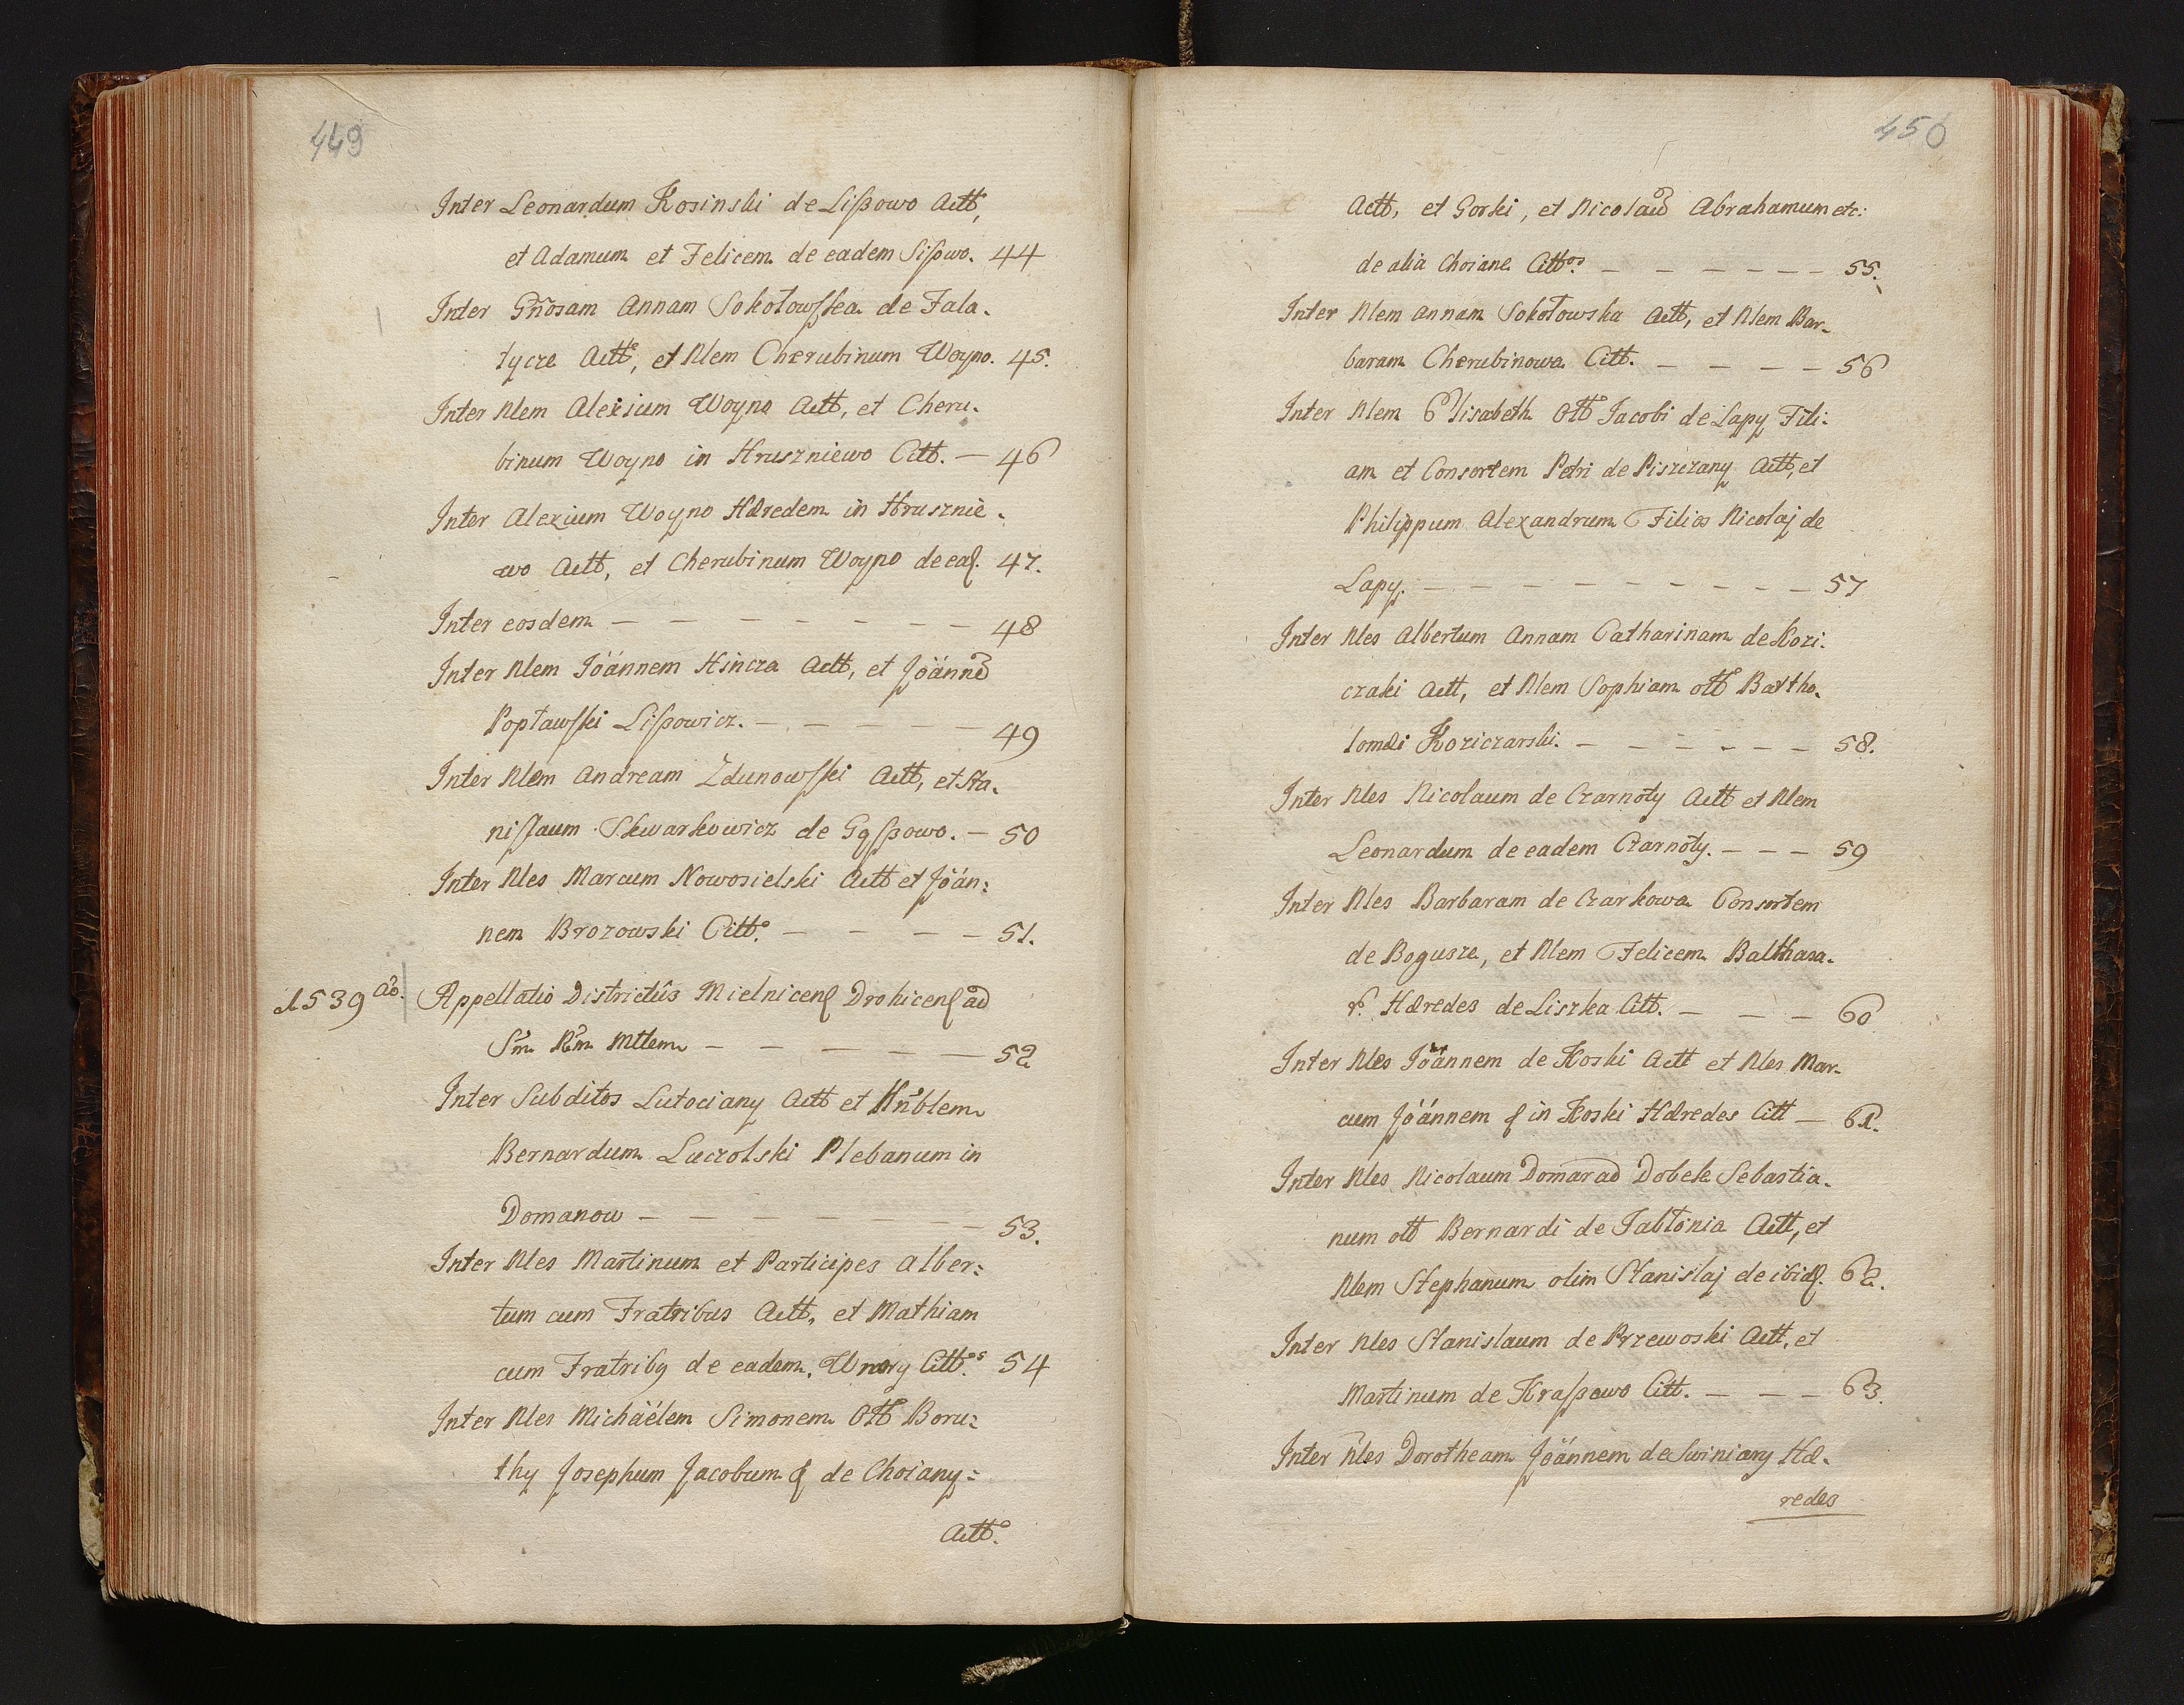 449
Inter Leonardum Kosinski de Lißowo Actt,
et Adamum et Felicem de eadem Lißwo. 44
Inter Gn̄osam Annam Sokołowſka de Fala-
tycze Actt, et Nlem Cherubinum Woyno. 45.
Inter Nlem Alexium Woyno Actt, et Cheru-
binum Woyno in Hruszniewo Citt. — 46
Inter Alexium Woyno Hæredem in Hrusznie-
wo Actt, et Cherubinum Woyno de ead. 47.
Inter eosdem — — — — — — — 48
Inter Nlem Joannem Hincza Actt, et Joanne
Popławſki Lißowicz. — — — — — 49
Inter Nlem Andream Zdunowſki Actt, et Sta-
niſlaum Skwarkowicz de Gąſſowo. — 50
Inter Nles Marcum Nowosielski Actt et Joan:
nem Brozowski Citt. — — — — 51.
1539 ao. Appellatio Districtûs Mielnicenſ Drohicenſ ad
Sm. Rm. Mttem — — — — — 52
Inter Subditos Lutociany Actt et Hnblem
Bernardum Luczolski Plebanum in
Domanow — — — — — — — 53.
Inter Nles Martinum et Participes Alber:
tum cum Fratribus Actt, et Mathiam
cum Fratriby de eadem Wnory Citt.os 54
Inter Nles Michaëlem Simonem Ott Boru:
thy Josephum Jacobum & de Choiany:
Actt.
450
Actt, et Gorski, et Nicolau Abrahamum etc:
de alia Choiane Citt.os — — — — — — 55.
Inter Nlem Annam Sokołowska Actt, et Nlem Bar-
baram Cherubinowa Citt. — — — — 56
Inter Nlem Elisabeth Ott Jacobi de Lapy Fili:
am et Consortem Petri de Piszczany Actt, et
Philippum Alexandrum Filios Nicolaj de
Lapy. — — — — — — — — 57
Inter Nles Albertum Annam Catharinam de Kozi:
czaki Actt, et Nlem Sophiam ott Bartho-
lomæi Koziczarski. — — — — — — 58.
Inter Nles Nicolaum de Czarnoty Actt et Nlem
Leonardum de eadem Czarnoty. — — — 59
Inter Nles Barbaram de Czarkowa Consortem
de Bogusze, et Nlem Felicem Balthasa-
r. Hæredes de Liszka Citt. — — — 60
Inter Nles Joannem de Koski Actt et Nles Mar-
cum Joannem & in Koski Hæredes Citt — 61.
Inter Nles Nicolaum Domarad Dobek Sebastia-
num ott Bernardi de Jabłonia Actt, et
Nlem Stephanum olim Stanislaj de ibid. 62.
Inter Nles Stanislaum de Przewoski Actt, et
Martinum de Kraßowo Citt. — — — 63.
Inter Nles Dorotheam Joannem de Swiniary Hæ-
redes